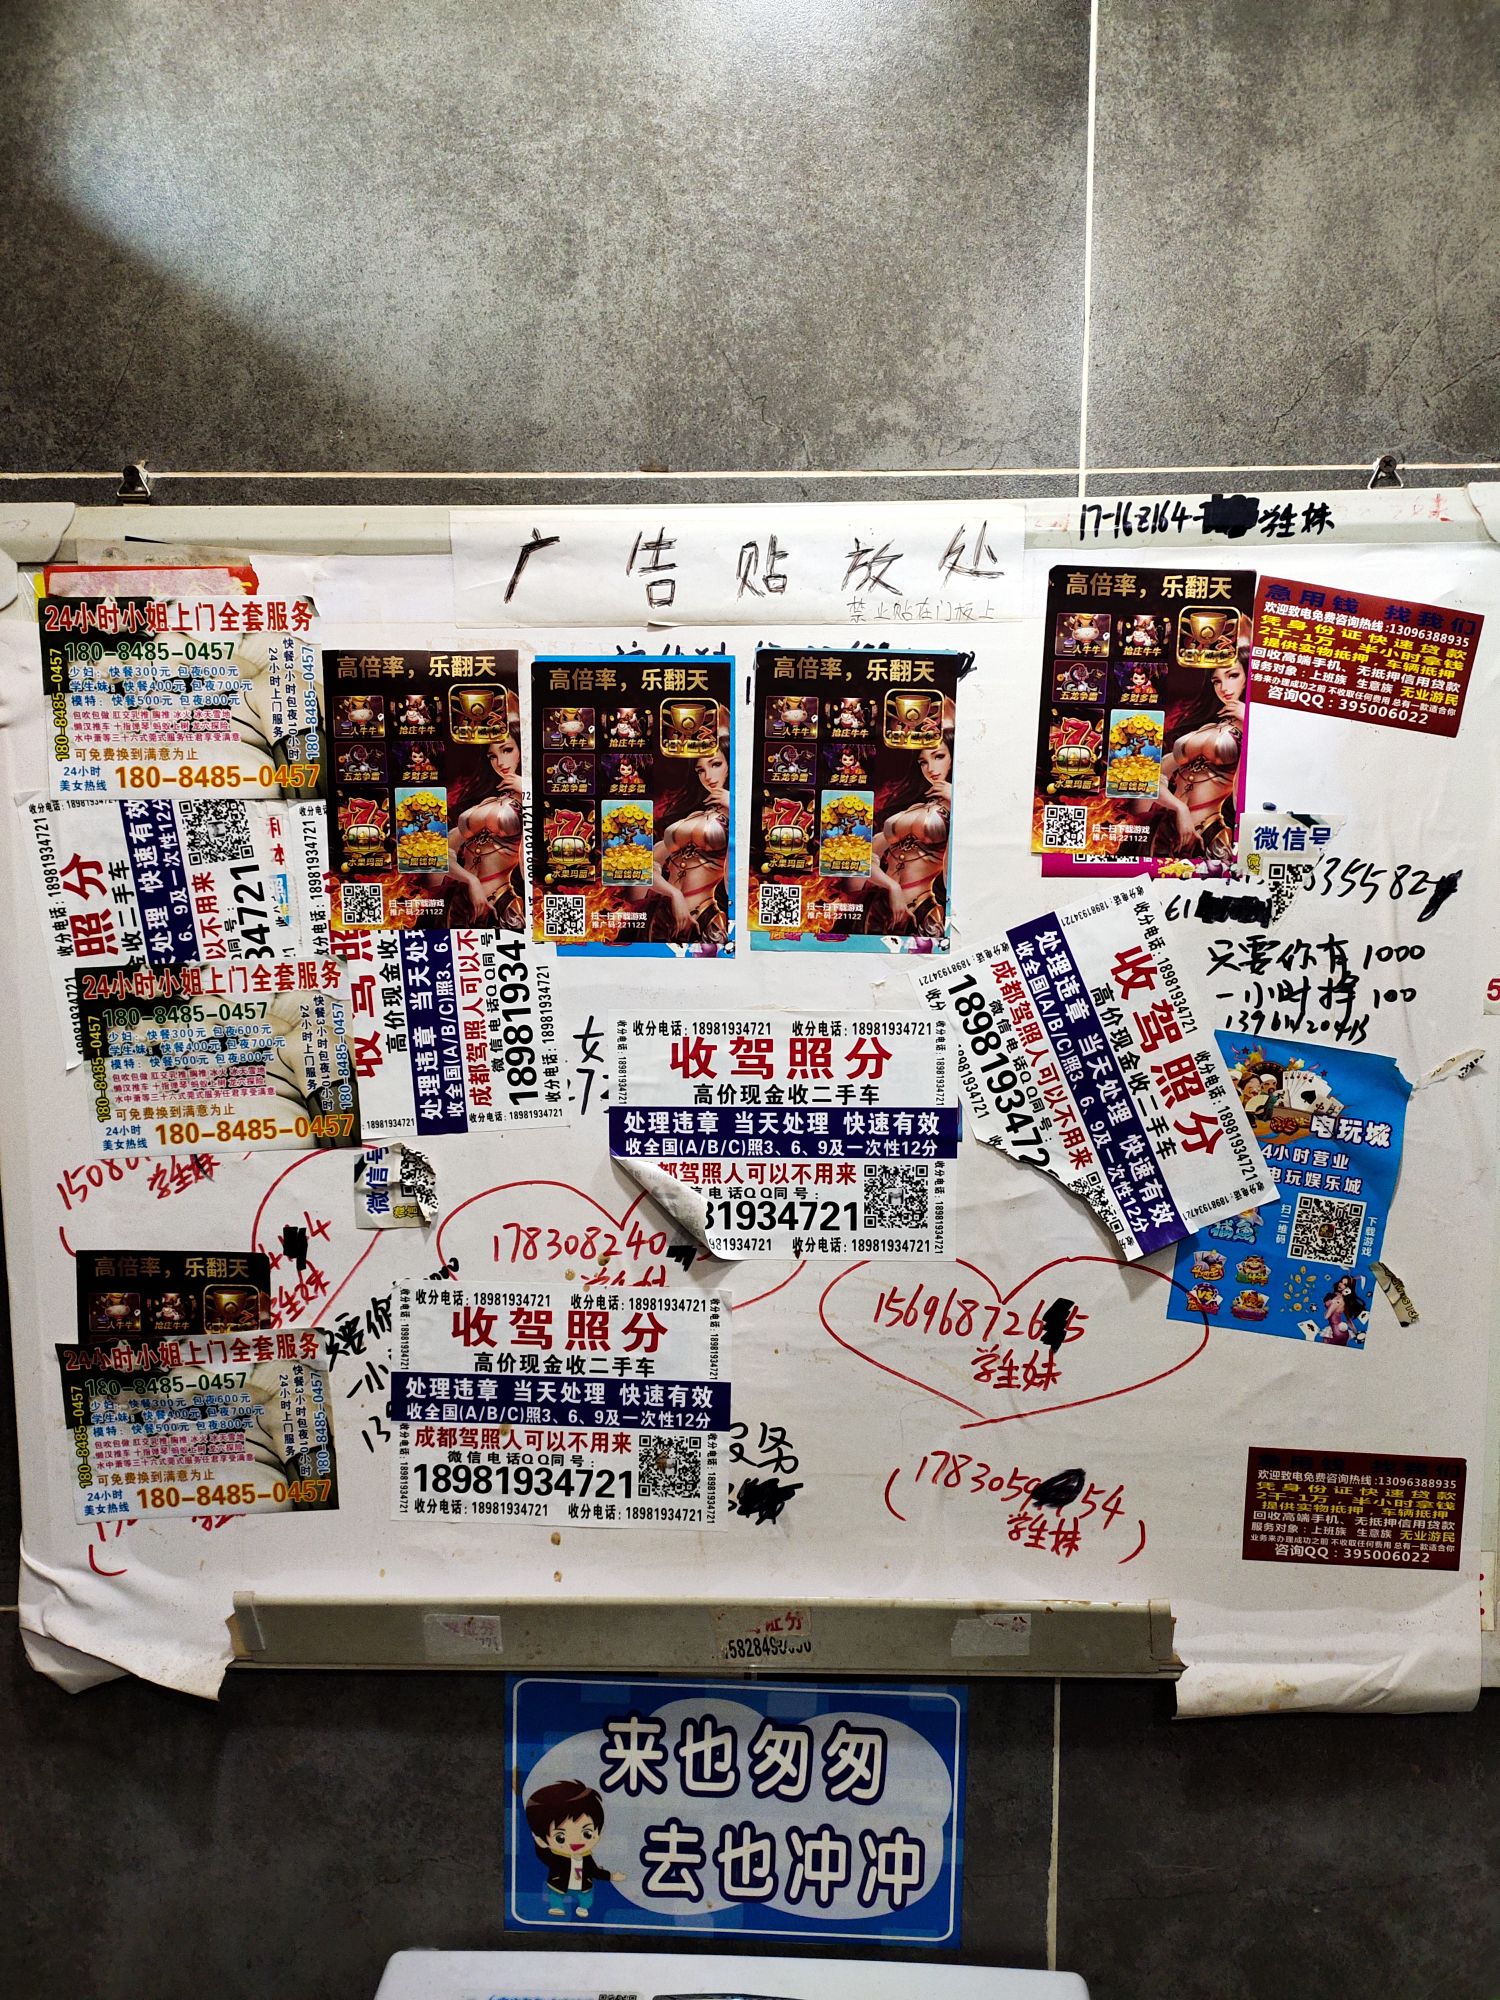 17-16z164-
学生妹
广告贴放处
禁止贴在门板上
24小时小姐上门全套服务
180-8485-0457
少妇：快餐300元 包夜600元
学生妹：快餐400元 包夜700元
模特：快餐500元 包夜800元
可免费换到满意为止
24小时
美女热线
180-8485-0457
180-8485-0457
24小时上门服务
180-8485-0457
高倍率，乐翻天
二人牛牛
抢庄牛牛
五龙争霸
多财多福
水果玛丽
摇钱树
扫一扫下载游戏
推广码:221122
高倍率，乐翻天
二人牛牛
抢庄牛牛
五龙争霸
多财多福
水果玛丽
摇钱树
扫一扫下载游戏
推广码:221122
高倍率，乐翻天
二人牛牛
抢庄牛牛
五龙争霸
多财多福
水果玛丽
摇钱树
扫一扫下载游戏
推广码:221122
高倍率，乐翻天
二人牛牛
抢庄牛牛
五龙争霸
多财多福
水果玛丽
摇钱树
扫一扫下载游戏
推广码:221122
急用钱 找我们
欢迎致电免费咨询热线:13096388935
凭身份证快速贷款
2千-1万，半小时拿钱
提供实物抵押，车辆抵押
回收高端手机、无抵押信用贷款
服务对象：上班族 生意族 无业游民
业务来办理成功之前 不收取任何费用 总有一款适合你
咨询QQ：395006022
微信号
335582
61
只要你有1000
一小时挣100
24小时小姐上门全套服务
180-8485-0457
少妇：快餐300元 包夜600元
学生妹：快餐400元 包夜700元
模特：快餐500元 包夜800元
可免费换到满意为止
24小时
美女热线
180-8485-0457
收分电话：18981934721
照分
二手车
快速有效
一次性12分
以不用来
34721
高价现金收
处理违章 当天处
收全国(A/B/C)照3、6、
成都驾照人可以不
微信电话QQ同号：
18981934
收分电话：18981934721
收分电话：18981934721 收分电话：18981934721
收驾照分
高价现金收二手车
处理违章 当天处理 快速有效
收全国(A/B/C)照3、6、9及一次性12分
都驾照人可以不用来
信电话QQ同号：
81934721
81934721 收分电话：18981934721
收分电话：18981934721
收驾照分
高价现金收二手车
处理违章 当天处理 快速有效
收全国(A/B/C)照3、6、9及一次性12分
成都驾照人可以不用来
微信电话QQ同号：
189819347
电玩城
24小时营业
电玩娱乐城
扫二维码
下载游戏
捕鱼
学生妹
微信号
178308240
156968726
5
学生妹
高倍率，乐翻天
二人牛牛
抢庄牛牛
24小时小姐上门全套服务
180-8485-0457
少妇：快餐300元 包夜600元
学生妹：快餐400元 包夜700元
模特：快餐500元 包夜800元
可免费换到满意为止
24小时
美女热线
180-8485-0457
收分电话：18981934721 收分电话：18981934721
收驾照分
高价现金收二手车
处理违章 当天处理 快速有效
收全国(A/B/C)照3、6、9及一次性12分
成都驾照人可以不用来
微信电话QQ同号：
18981934721
收分电话：18981934721 收分电话：18981934721
务
1783059
54
学生妹
急用钱 找我们
欢迎致电免费咨询热线:13096388935
凭身份证快速贷款
2千-1万，半小时拿钱
提供实物抵押，车辆抵押
回收高端手机、无抵押信用贷款
服务对象：上班族 生意族 无业游民
业务来办理成功之前 不收取任何费用 总有一款适合你
咨询QQ：395006022
证分
来也匆匆
去也冲冲